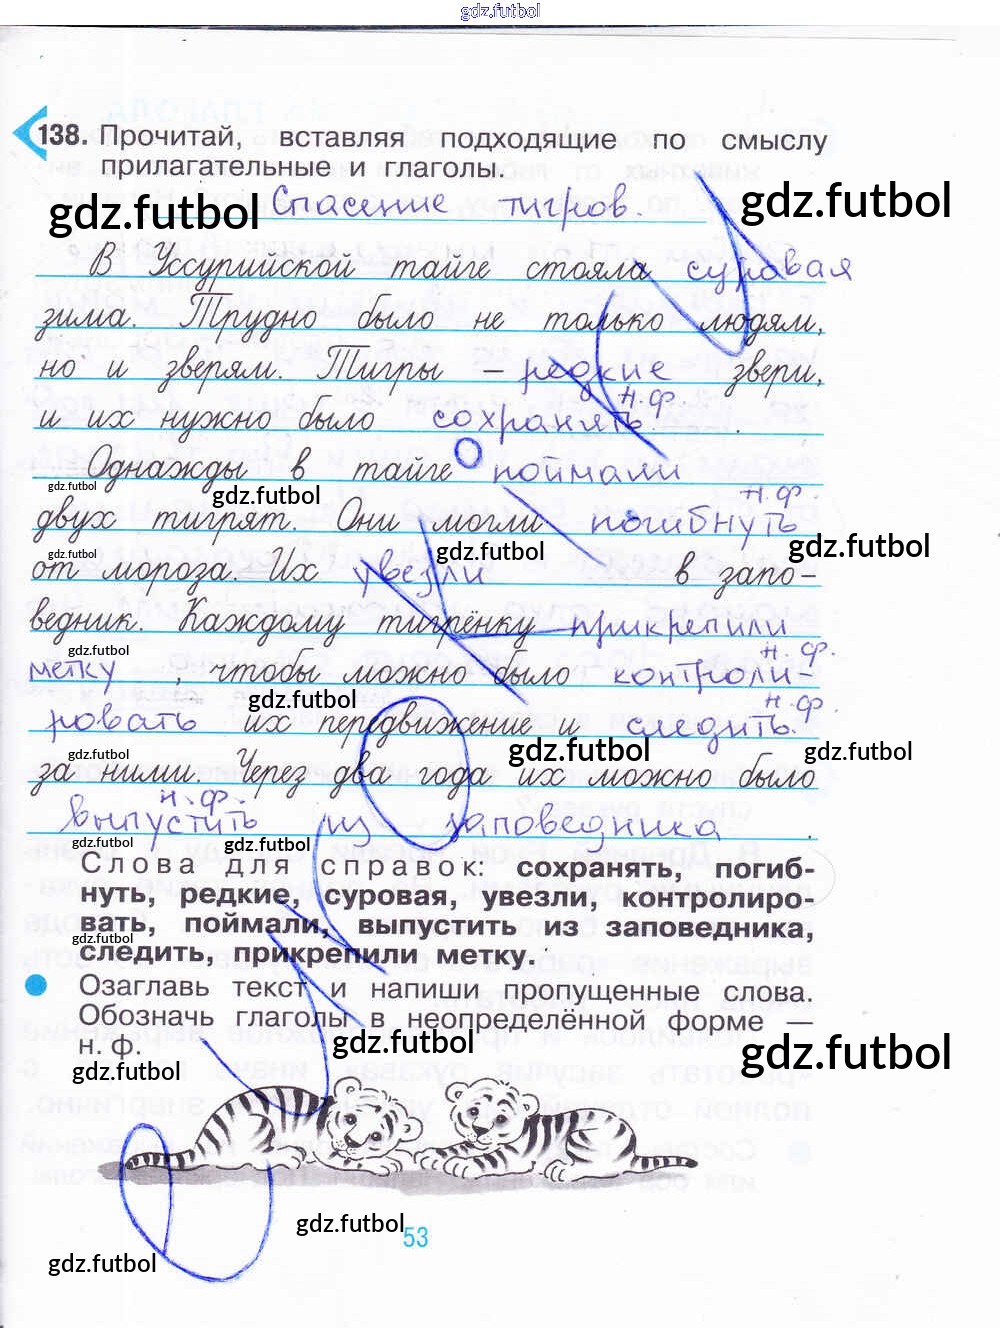 gdz.futbol
138. Прочитай, вставляя подходящие по смыслу
прилагательные и глаголы.
gdz.futbol
Спасение тигров.
gdz.futbol
В Уссурийской тайге стояла суровая
зима. Трудно было не только людям,
но и зверям. Тигры – редкие звери,
н.ф.
и их нужно было сохранять.
Однажды в тайге поймали
gdz.futbol
gdz.futbol
н.ф.
двух тигрят. Они могли погибнуть
gdz.futbol
gdz.futbol
gdz.futbol
от мороза. Их увезли в запо-
ведник. Каждому тигрёнку прикрепили
gdz.futbol
н.ф.
метку, чтобы можно было контроли-
gdz.futbol
н.ф.
ровать их передвижение и следить.
gdz.futbol
gdz.futbol
gdz.futbol
за ними. Через два года их можно было
н.ф.
выпустить из заповедника
gdz.futbol
gdz.futbol
Слова для справок: сохранять, погиб-
нуть, редкие, суровая, увезли, контролиро-
вать, поймали, выпустить из заповедника,
gdz.futbol
следить, прикрепили метку.
Озаглавь текст и напиши пропущенные слова.
Обозначь глаголы в неопределённой форме —
н. ф.
gdz.futbol
gdz.futbol
gdz.futbol
gdz.futbol
53
gdz.futbol